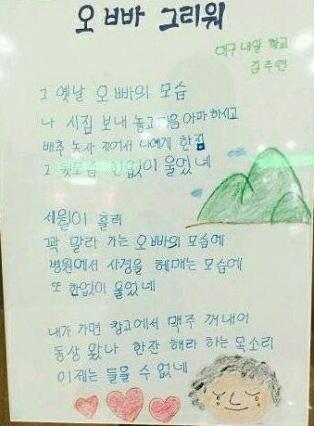 오 빠바 그리워
대구내일 학교
김주연
그 옛날 오빠의 모습
나 시집 보내 놓고 마음 아파 하시고
배추 농사 지어서 나에게 한짐
그 뒷모습 한없이 울었네
세월이 흘러
꽉 말라 가는 오빠의 모습에
병원에서 사경을 헤매는 모습에
또 한없이 울었네
내가 가면 창고에서 맥주 꺼내어
동상 왔나 한잔 해라 하는 목소리
이제는 들을 수 없네